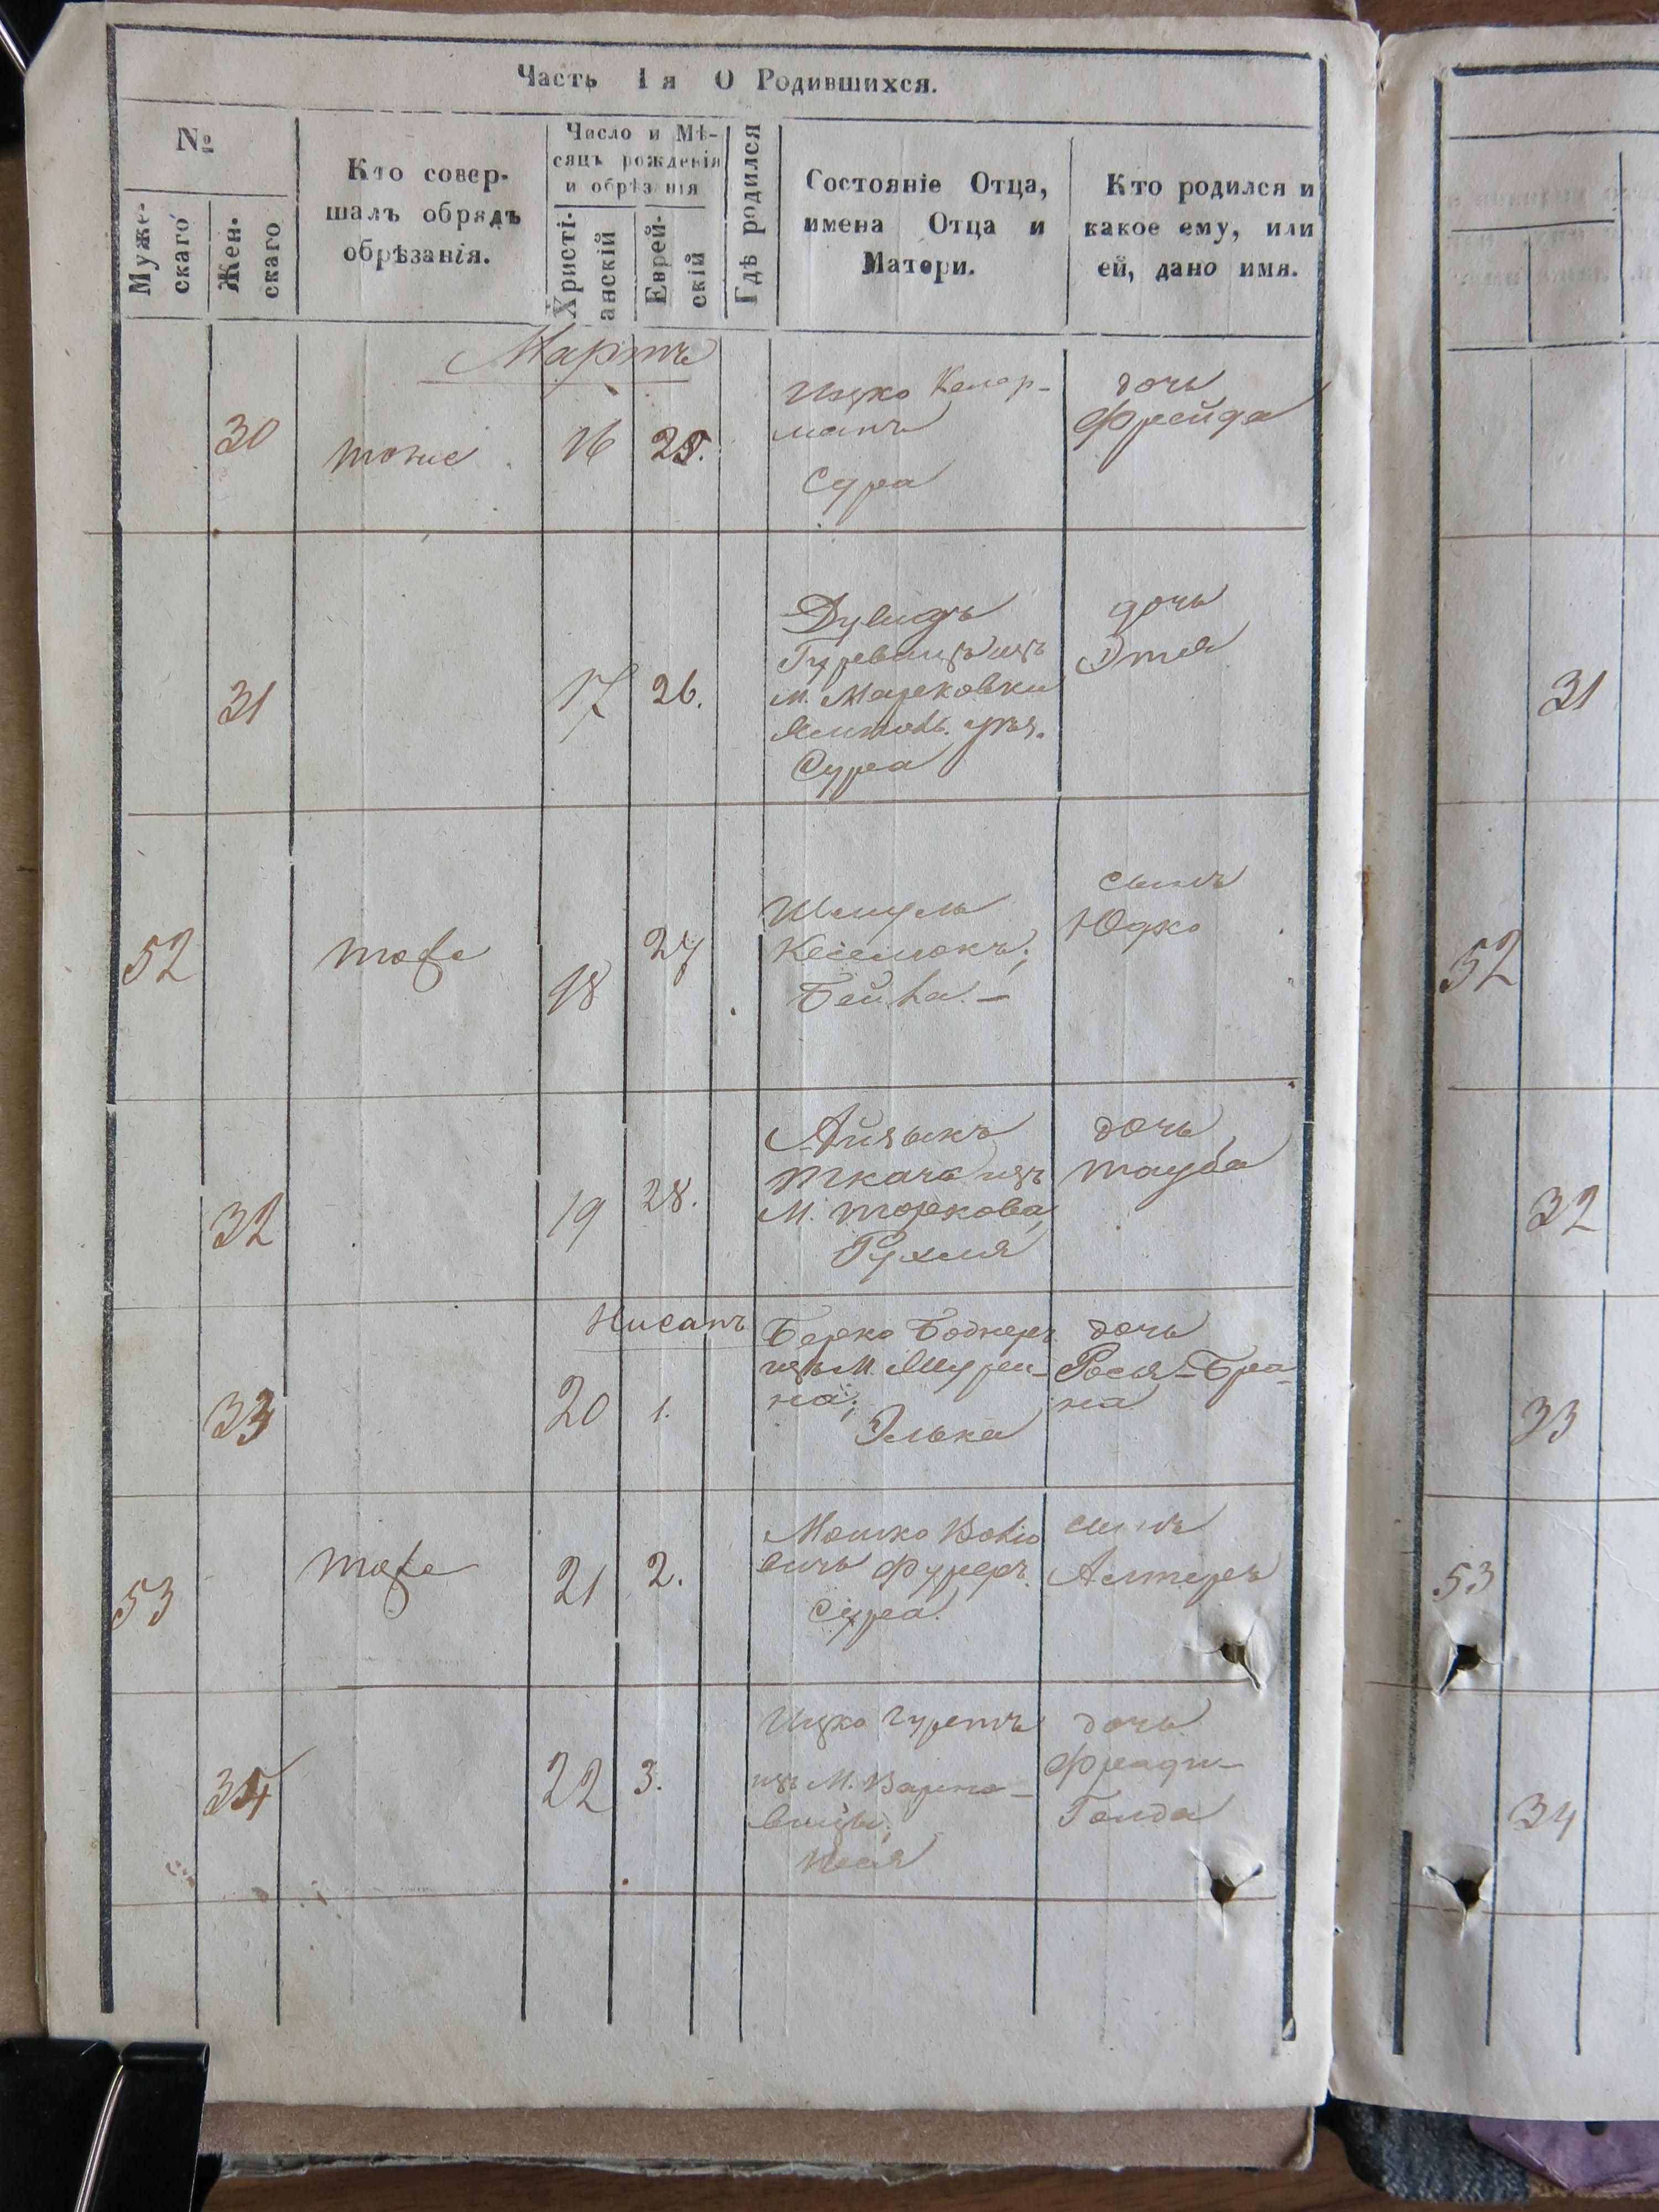 Часть 1я О Родившихся.
№
Муже-
скаго
Жен-
скаго
Кто совер-
шалъ обрядъ
обрѣзанія.
Число и Мѣ-
сяцъ рожденія
и обрѣзанія
Христі-
анскій
Еврей-
скій
Гдѣ родился
Состояніе Отца,
имена Отца и
Матери.
Кто родился и
какое ему, или
ей, дано имя.
Мартъ
30
тоже
16
25.
Ицко
манъ
Сура
дочь
Фрейда
31
17
26.
Дувидъ
Гуревицъ изъ
м. Марковки
Сура
дочь
Этя
31
52
тоже
18
27
Шмуль
Бейла. –
сынъ
Юдко
52
32
19
28.
Айзыкъ
Ткачъ изъ
м. Торкова,
Рухля
дочь
Тауба
32
Нисанъ
33
20
1.
Берко Боднеръ
изъ М.
на;
Элька
дочь
Рося-Бра-
на
33
53
тоже
21
2.
Мошко
вичъ Фуреръ.
Сура.
сынъ
Алтеръ
53
34
22
3.
Ицко
изъ М.
дочь
Голда
34